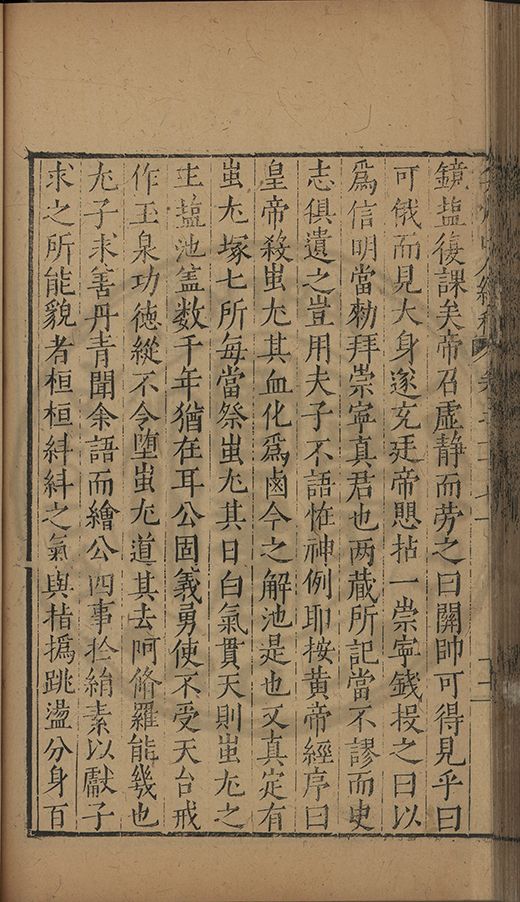 鏡塩復課矣帝召虛靜而勞之曰關帥可得見乎曰
可俄而見大身遂充廷帝愳拈一崇寧錢投之曰以
為信明當勑拜崇寧真君也两蔵所記當不謬而史
志俱遺之豈用夫子不語怪神例耶按黃帝經序曰
皇帝殺蚩尤其血化爲鹵今之解池是也又真定有
蚩尤塚七所每當祭蚩尤其日白氣貫天則蚩尤之
主塩池盖数千年猶在耳公固義勇使不受天台戒
作玉泉功德縱不令堕蚩尤道其去阿脩羅能幾也
尤子求善丹青聞余語而繪公四事於絹素以獻子
求之所能貌者桓桓糾糾之氣與撠撝跳盪分身百